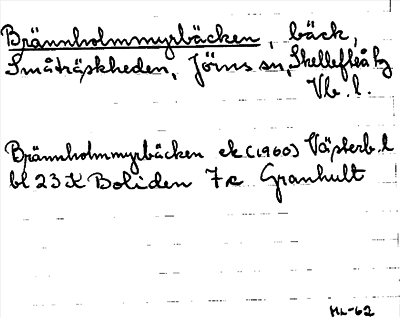 Brännholmmyrbäcken, bäck,
Småträskheden, Jörns sn, Skellefteå
Vb. l.
Brännholmmyrbäcken ek (1960) Västerb. l
bl 23 K Boliden 7 c Granhult
HL-62